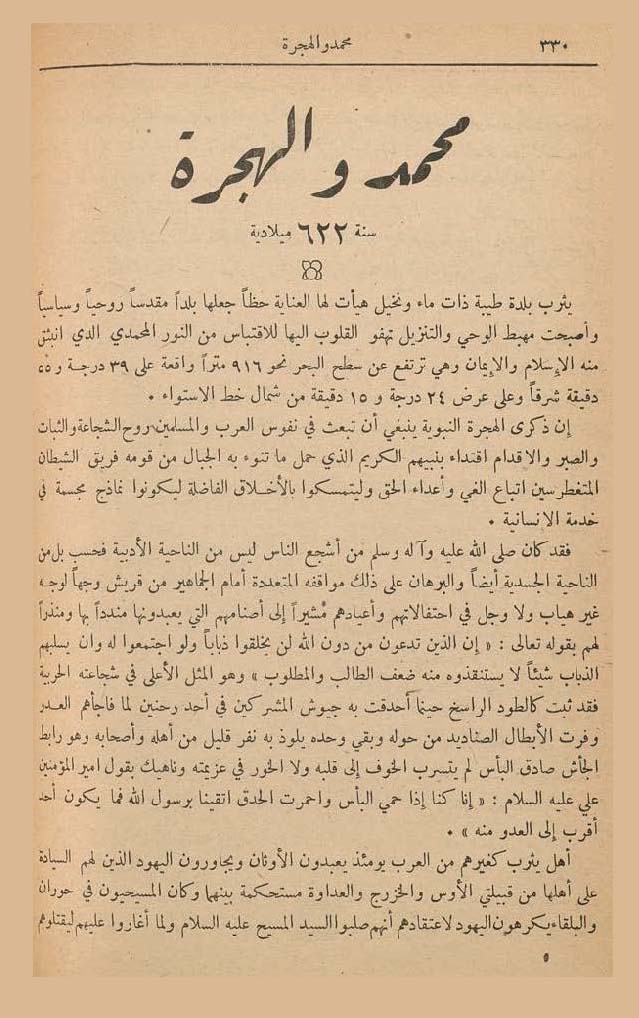 ٣٣٠
محمد والهجرة
محمد والهجرة
سنة ٦٢٢ ميلادية
يثرب بلدة طيبة ذات ماء ونخيل هيأت لها العناية حظاً جعلها بلداً مقدساً روحياً وسياسياً
وأصبحت مهبط الوحي والتنزيل تهفو القلوب اليها للاقتباس من النور المحمدي الذي انبثق
منه الإسلام والإيمان وهي ترتفع عن سطح البحر نحو ٩١٦ متراً واقعة على ٣٩ درجة و ٥٥
دقيقة شرقاً وعلى عرض ٢٤ درجة و ١٥ دقيقة من شمال خط الاستواء .
إن ذكرى الهجرة النبوية ينبغي أن تبعث في نفوس العرب والمسلمين روح الشجاعة والثبات
والصبر والإقدام اقتداء بنبيهم الكريم الذي حمل ما تنوء به الجبال من قومه فريق الشيطان
المتغطرسين اتباع الغي وأعداء الحق وليتمسكوا بالأخلاق الفاضلة ليكونوا نماذج مجسمة في
خدمة الإنسانية .
فقد كان صلى الله عليه وآله وسلم من أشجع الناس ليس من الناحية الأدبية فحسب بل من
الناحية الجسدية أيضاً والبرهان على ذلك مواقفه المتعددة أمام الجماهير من قريش وجهاً لوجه
غير هياب ولا وجل في احتفالاتهم وأعيادهم مشيراً إلى أصنامهم التي يعبدونها مندداً بها ومنذراً
لهم بقوله تعالى : « إن الذين تدعون من دون الله لن يخلقوا ذباباً ولو اجتمعوا له وان يسلبهم
الذباب شيئاً لا يستنقذوه منه ضعف الطالب والمطلوب » وهو المثل الأعلى في شجاعته الحربية
فقد ثبت كالطود الراسخ حينما أحدقت به جيوش المشركين في أحد وحنين لما فاجأهم العدو
وفرت الأبطال الصناديد من حوله وبقي وحده يلوذ به نفر قليل من أهله وأصحابه وهو رابط
الجأش صادق البأس لم يتسرب الخوف إلى قلبه ولا الخور في عزيمته وناهيك بقول امير المؤمنين
علي عليه السلام : « إنا كنا إذا حمي البأس واحمرت الحدق اتقينا برسول الله فما يكون أحد
أقرب إلى العدو منه » .
أهل يثرب كغيرهم من العرب يومئذ يعبدون الأوثان ويجاورون اليهود الذين لهم السيادة
على أهلها من قبيلتي الأوس والخزرج والعداوة مستحكمة بينهما وكان المسيحيون في حوران
والبلقاء يكرهون اليهود لاعتقادهم أنهم صلبوا السيد المسيح عليه السلام ولما أغاروا عليهم ليقتلوهم